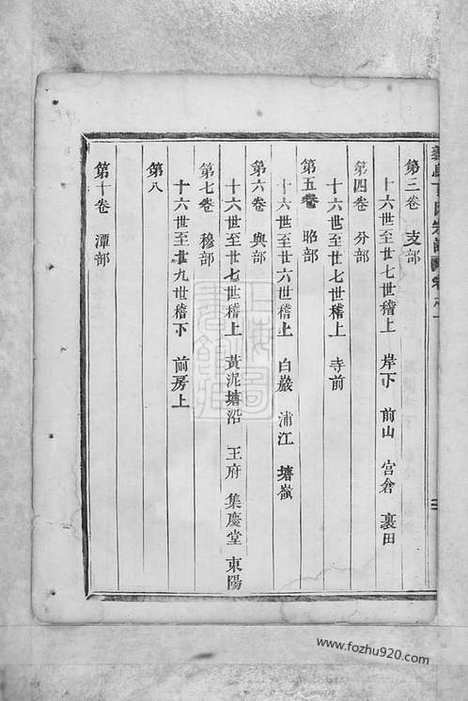 第三卷 支部
十六世至廿七世稽上 岸下 前山 宮倉 裏田
第四卷 分部
十六世至廿七世稽上 寺前
第五卷 昭部
十六世至廿六世稽上 白巖 浦江 塘嶺
第六卷 與部
十六世至廿七世稽上 黃泥塘沿 王府 集慶堂 東陽
第七卷 穆部
十六世至廿九世稽下 前房上
第八
第十卷 潭部
www.fozhu920.com